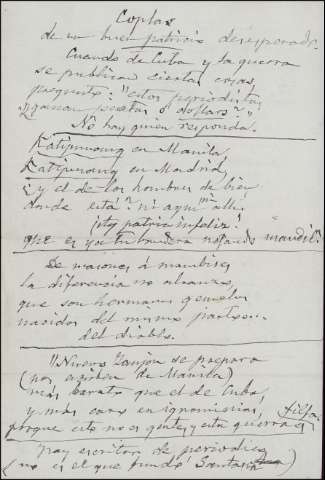 Coplas
de un buen patricio desesperado.
Cuando de Cuba y la guerra
se publican ciertas cosas,
pregunto: "estos periodistas,
¿ganan pesetas ó dollars?"
No hay quien responda.
Katipunang en Manila,
Katipunang en Madrid,
¿y el de los hombres de bien
donde está? ni aquí ni allí.
¡Ay patria infeliz!
que es ya tu bandera mandil.
De masones á mambises
la diferencia no alcanzo,
que son hermanos gemelos
nacidos del mismo parto...
del diablo.
Nuevo Zanjón se prepara
(nos escriben de Manila)
más barato que el de Cuba,
y más caro en ignominias,
porque esto no es gente, y esta guerra es filfa.
Hay escritor de periódico
(no es el que fundó Santa